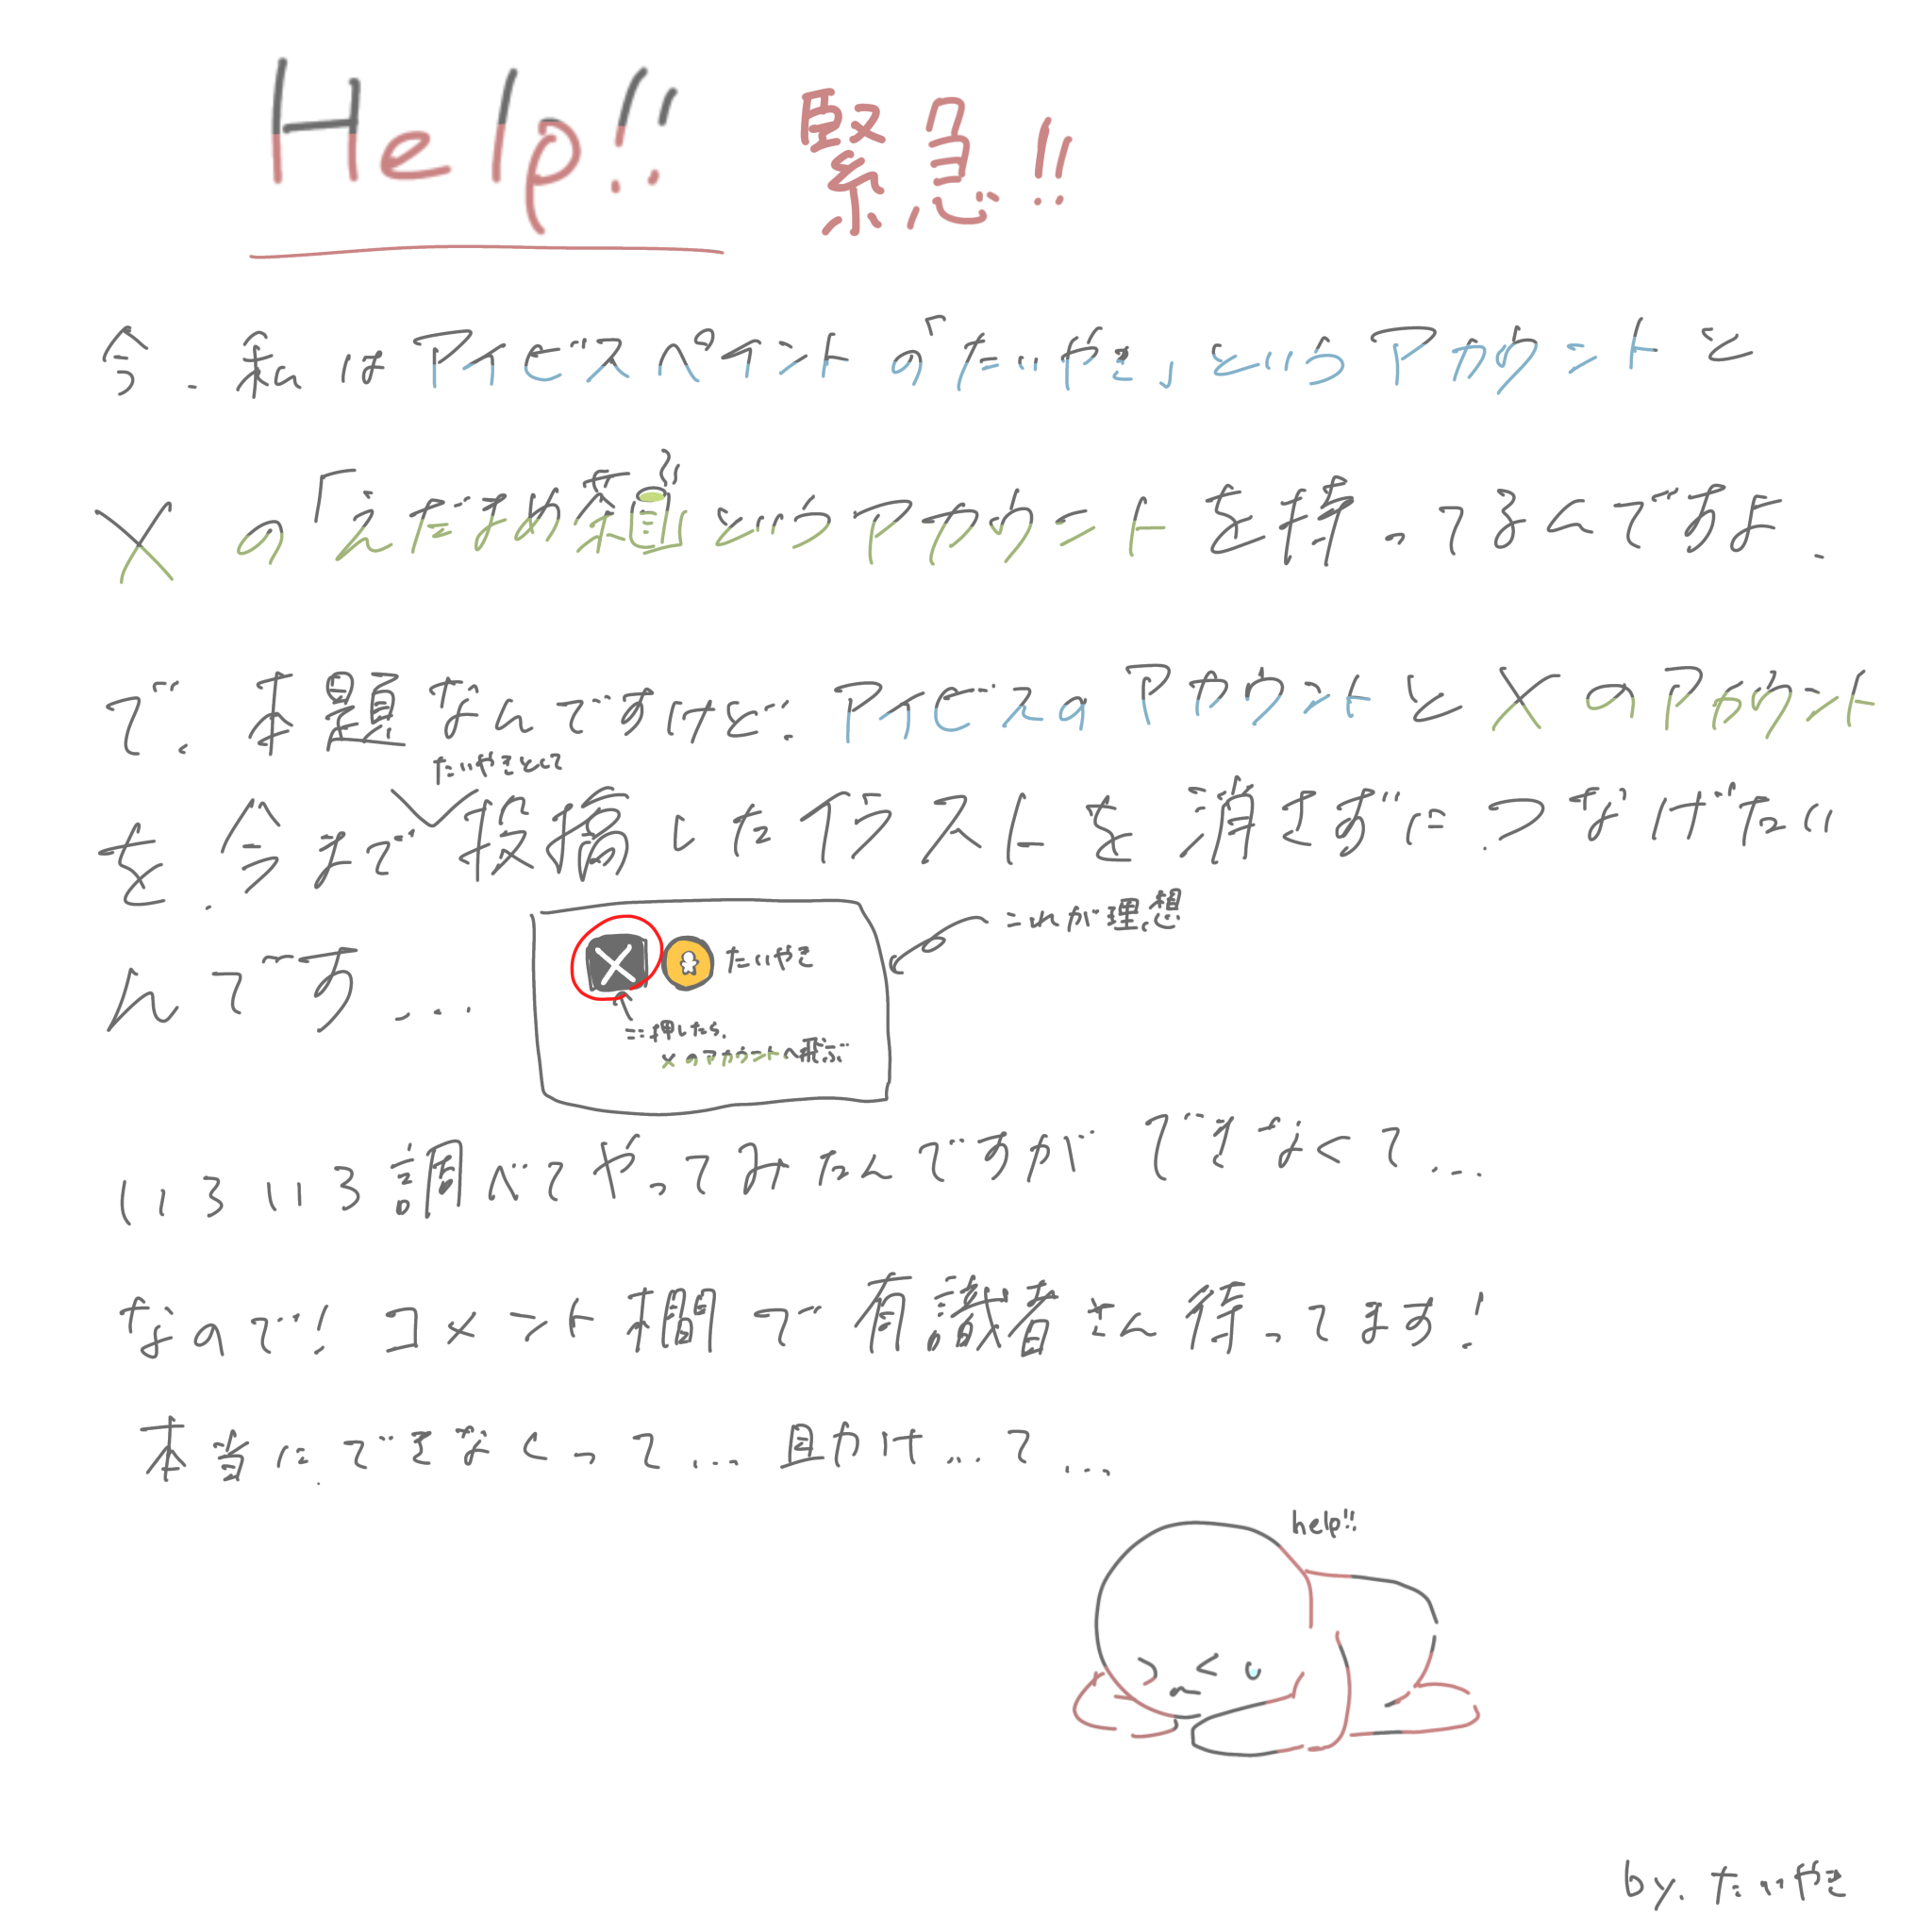 Help!! 緊急!!
今、私はアイビスペイントの「たいやき」というアカウントと
Xの「えだまめ茶というアカウントを持ってるんですよ、
で、本題なんですけど、アイビスのアカウントとXのアカウント
たいやきとして
を、今まで投稿したイラストを消さずに、つなげたい
んです…
これが理想
X たいやき
ここ押したら、
Xのアカウントへ飛ぶ
いろいろ調べてやってみたんですができなくて…
なので!コメント欄で有識者さん待ってます!
本当に、できなくって…助け…て…
help!!
by.たいやき